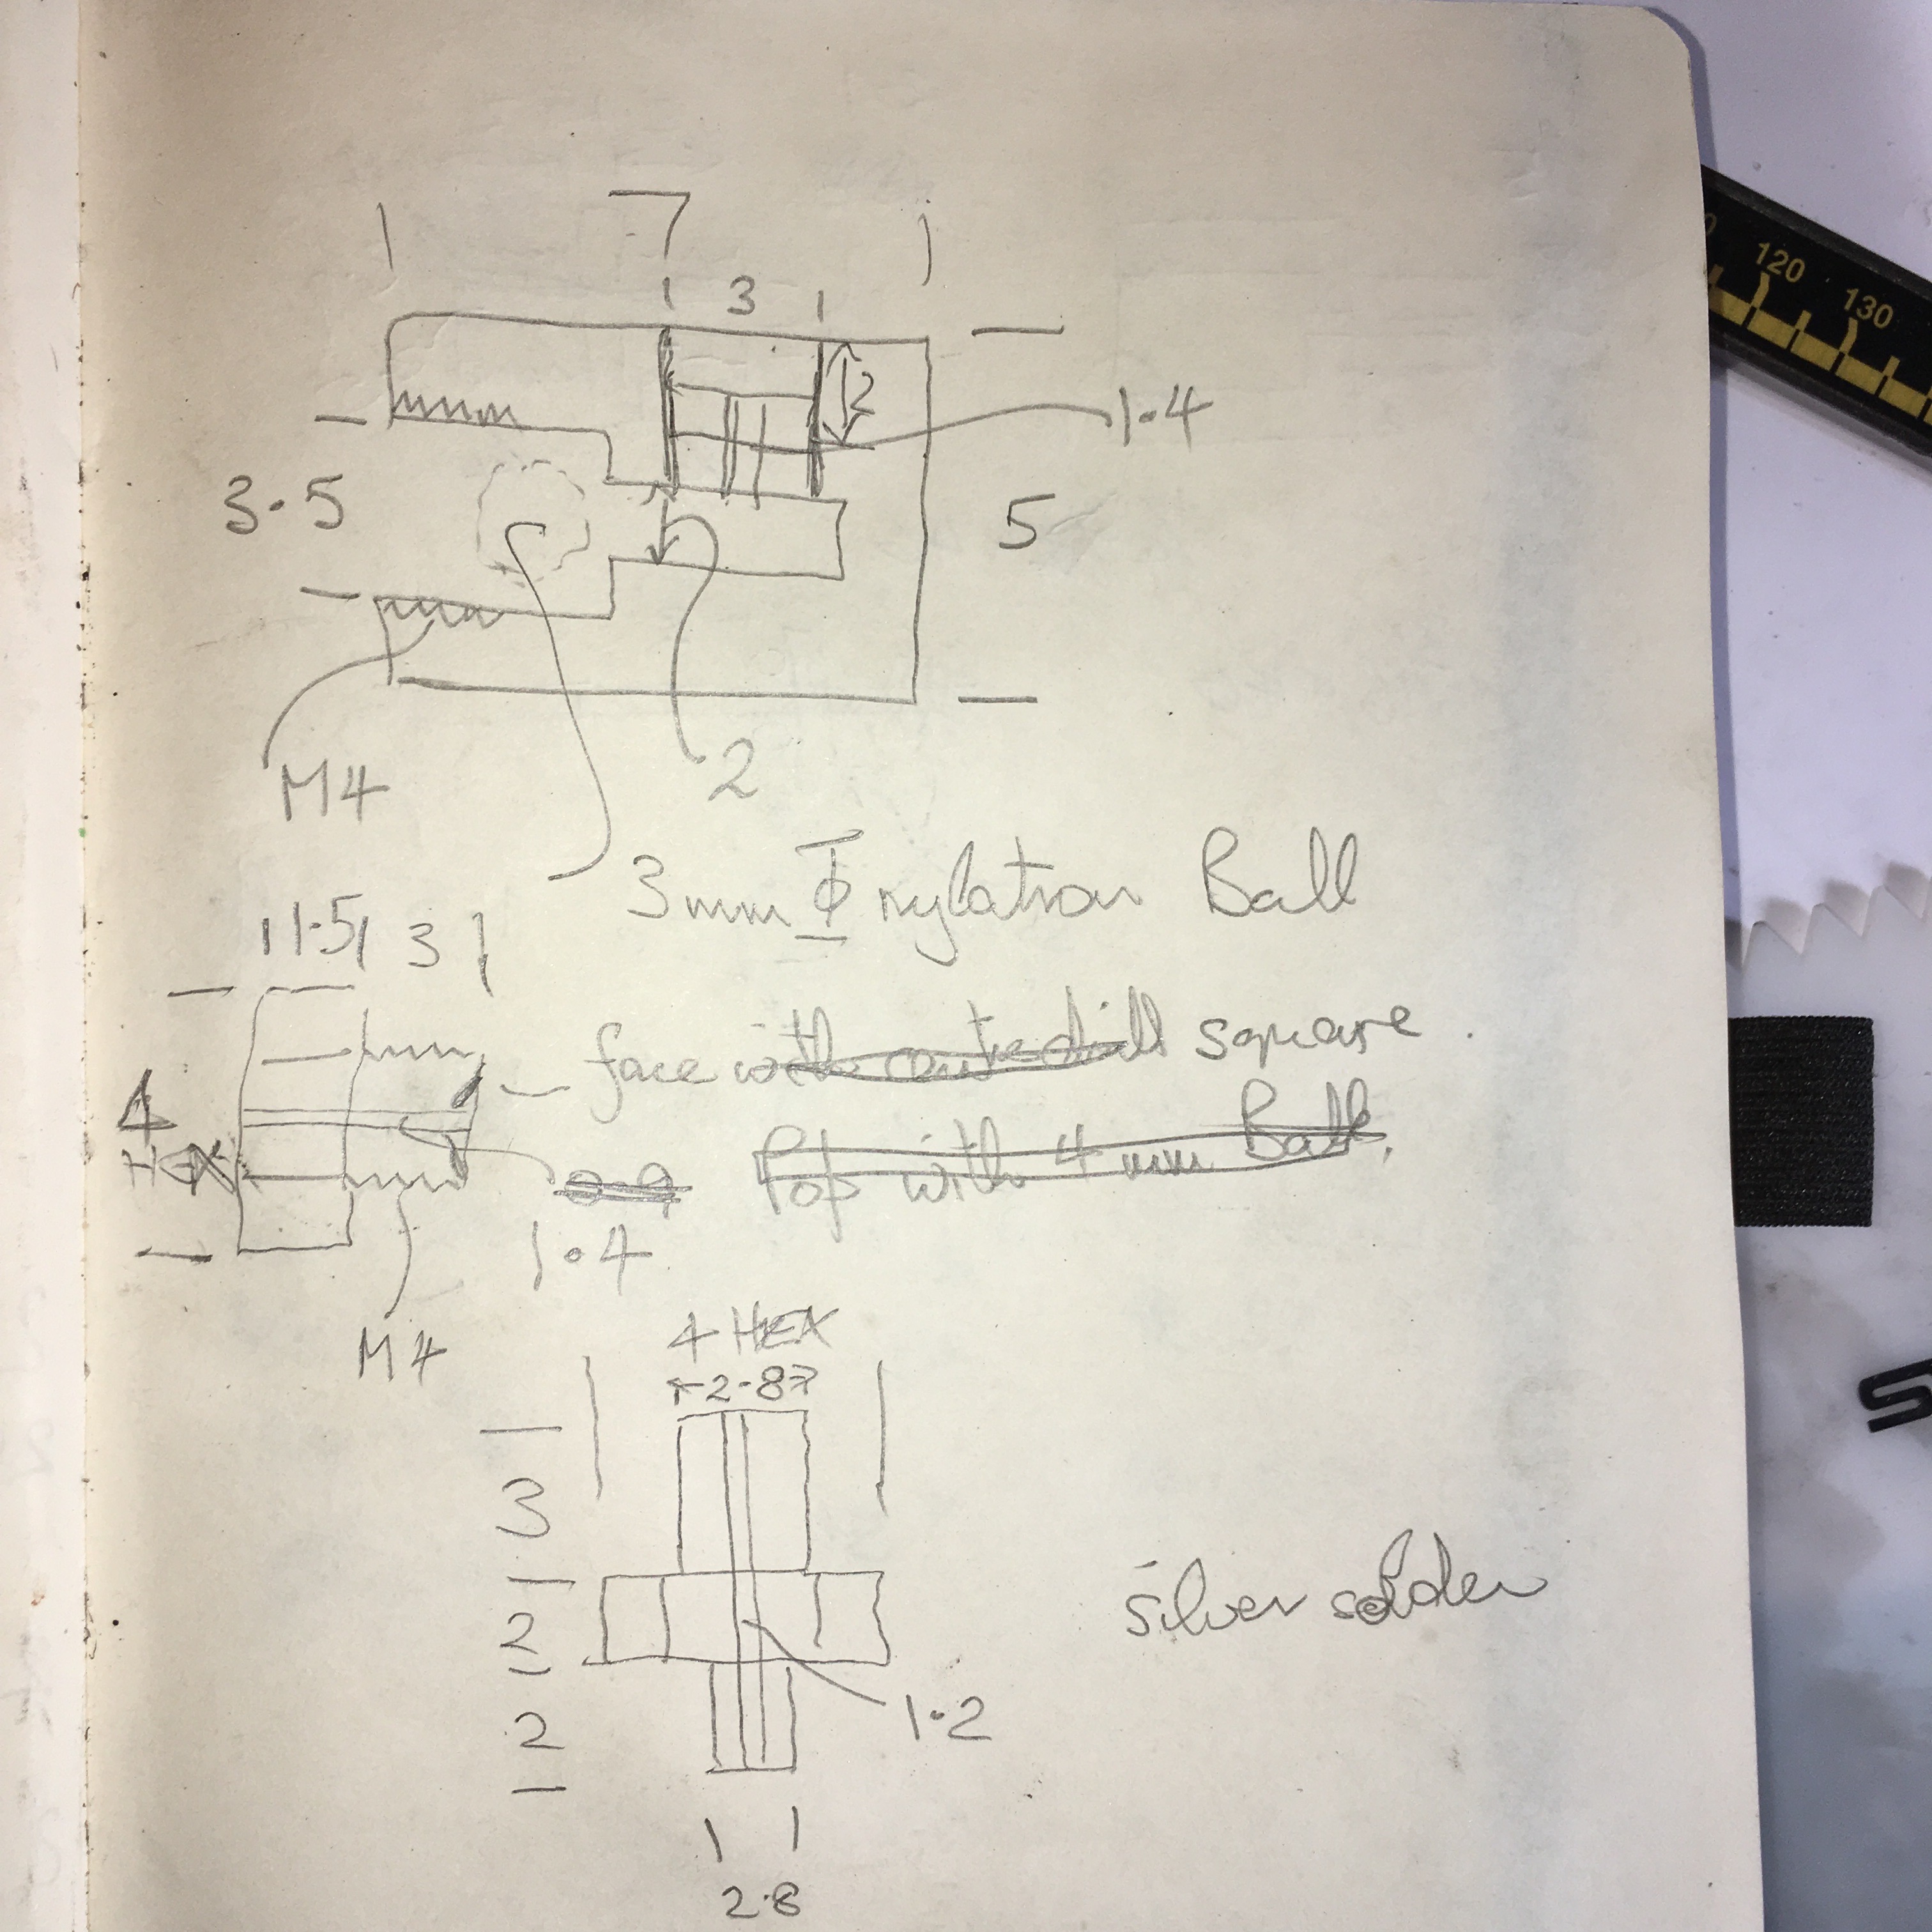 7
3
120
130
2
1.4
3.5
5
M4
2
3mm Φ nylatron Ball
1.5 3
face with centre drill square.
4
HEX
0.9 Pop with 4 mm Ball.
1.4
M4
4 HEX
2.8
3
silver solder
2
1.2
2
2.8